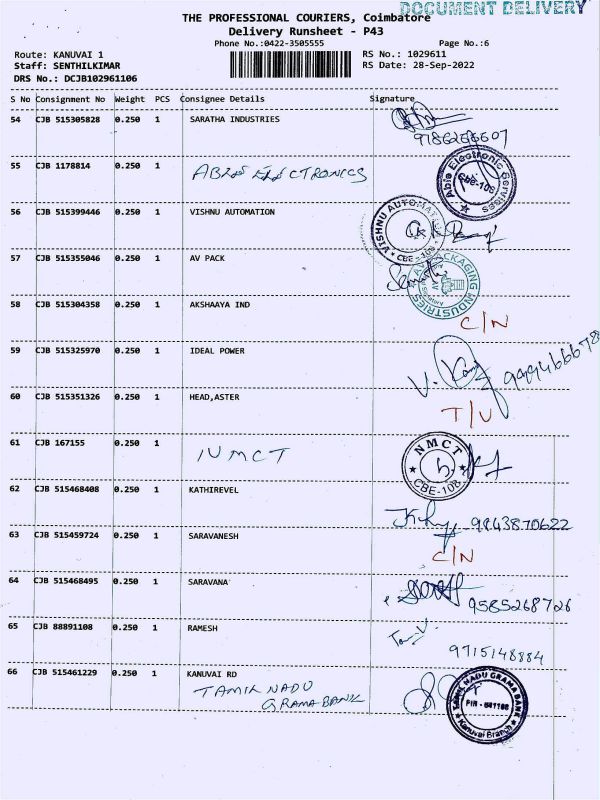 DOCUMENT DELIVERY
THE PROFESSIONAL COURIERS, Coimbatore
Delivery Runsheet - P43
Phone No.:0422-3505555 Page No.:6
Route: KANUVAI 1 RS No.: 1029611
Staff: SENTHILKIMAR RS Date: 28-Sep-2022
DRS No.: DCJB102961106
S No Consignment No Weight PCS Consignee Details Signature
54 CJB 515305828 0.250 1 SARATHA INDUSTRIES
55 CJB 1178814 0.250 1 ELECTRONICS
Able Electronic Services CBE-108
56 CJB 515399446 0.250 1 VISHNU AUTOMATION
VISHNU AUTOMATION CBE-108
57 CJB 515355046 0.250 1 AV PACK
AV PACKAGING INDUSTRIES
58 CJB 515304358 0.250 1 AKSHAAYA IND
C/N
59 CJB 515325970 0.250 1 IDEAL POWER
60 CJB 515351326 0.250 1 HEAD,ASTER
T/U
61 CJB 167155 0.250 1
NMCT
NMCT CBE-108
62 CJB 515468408 0.250 1 KATHIREVEL
9943870622
63 CJB 515459724 0.250 1 SARAVANESH
C/N
64 CJB 515468495 0.250 1 SARAVANA
9585268726
65 CJB 88891108 0.250 1 RAMESH
9715148884
66 CJB 515461229 0.250 1 KANUVAI RD
TAMIL NADU
GRAMA BANK
TAMIL NADU GRAMA BANK
PIN - 641108
Kanuvai Branch